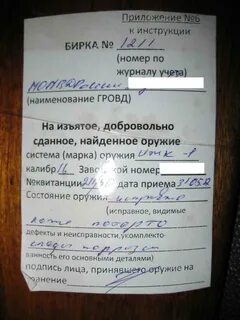 Приложение №6
к инструкции
БИРКА № 1211
(номер по
журналу учета)
(наименование ГРОВД)
На изъятое, добровольно
сданное, найденное оружие
система (марка) оружия
калибр 16 Заводской номер
№квитанции дата приема
Состояние оружия исправно
(исправное, видимые
ложе потерто
дефекты и неисправности, укомплекто-
следы коррозии
ванность его основными деталями)
подпись лица, принявшего оружие на
хранение